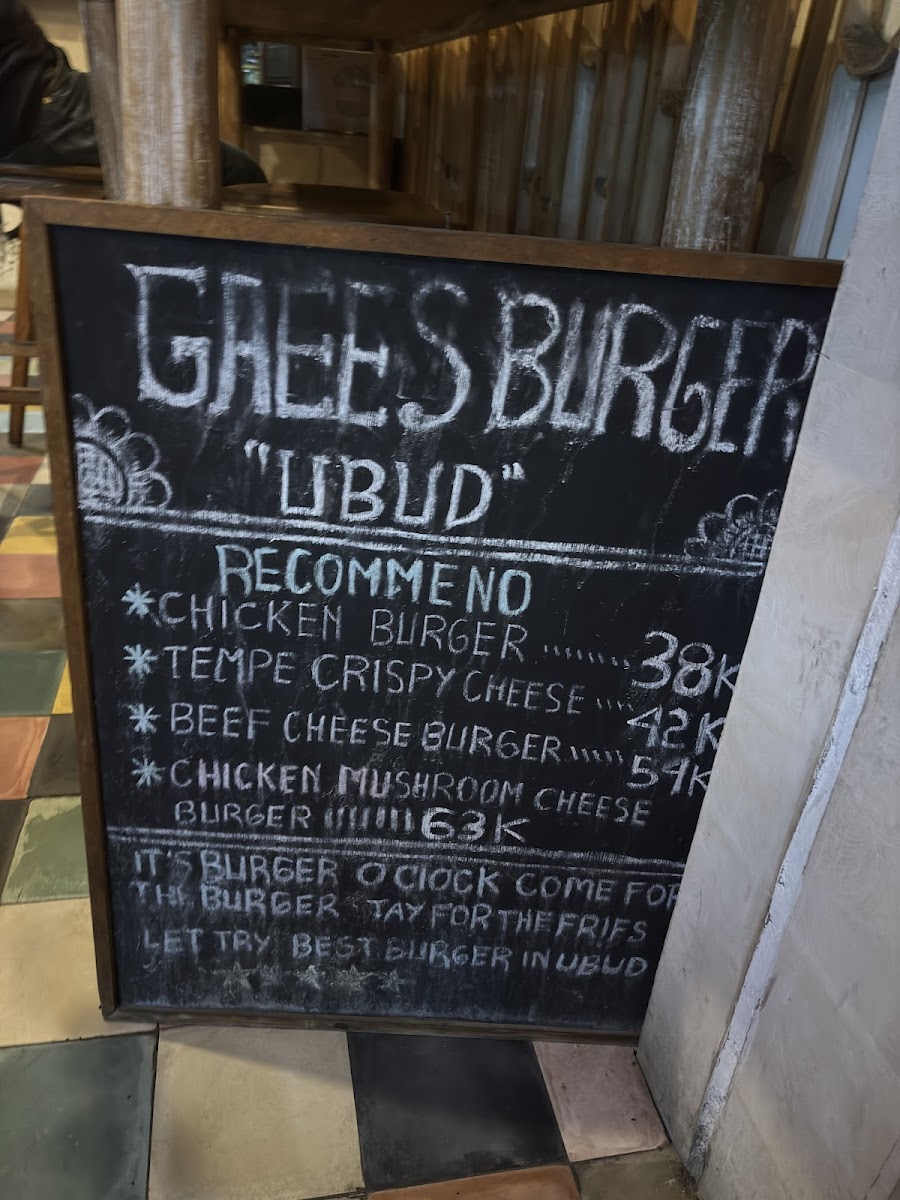 GAEES BURGER
"UBUD"
RECOMMENO
*CHICKEN BURGER ........ 38K
*TEMPE CRISPY CHEESE .... 42K
*BEEF CHEESE BURGER ...... 59K
*CHICKEN MUSHROOM CHEESE
BURGER ......... 63K
IT'S BURGER O'ClOCK COME FOR
THE BURGER TAY FOR THE FRIFS
LET TRY BEST BURGER IN UBUD